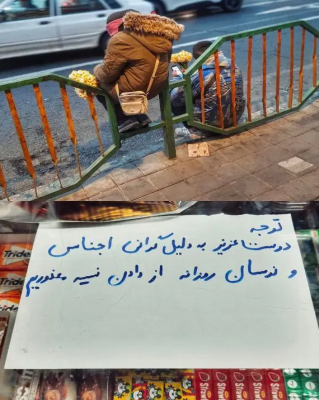 توجه
دوستان عزیز به دلیل گرانی اجناس
و نوسان روزانه از دادن نسیه معذوریم
Tride
Trident